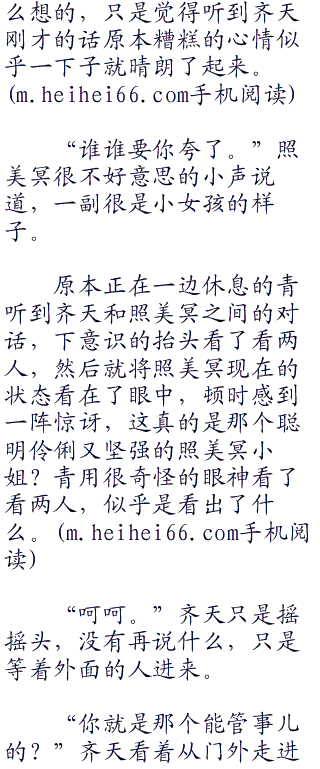 么想的，只是觉得听到齐天
刚才的话原本糟糕的心情似
乎一下子就晴朗了起来。
(m.heihei66.com手机阅读)
“谁谁要你夸了。”照
美冥很不好意思的小声说
道，一副很是小女孩的样
子。
原本正在一边休息的青
听到齐天和照美冥之间的对
话，下意识的抬头看了看两
人，然后就将照美冥现在的
状态看在了眼中，顿时感到
一阵惊讶，这真的是那个聪
明伶俐又坚强的照美冥小
姐？青用很奇怪的眼神看了
看两人，似乎是看出了什
么。(m.heihei66.com手机阅
读)
“呵呵。”齐天只是摇
摇头，没有再说什么，只是
等着外面的人进来。
“你就是那个能管事儿
的？”齐天看着从门外走进